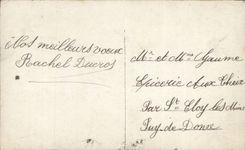 Nos meilleurs voeux
Rachel Ducros
Mr et Mme Gaume
Epicerie Aux Cheix
Par St Eloy les Mines
Puy-de-Dome